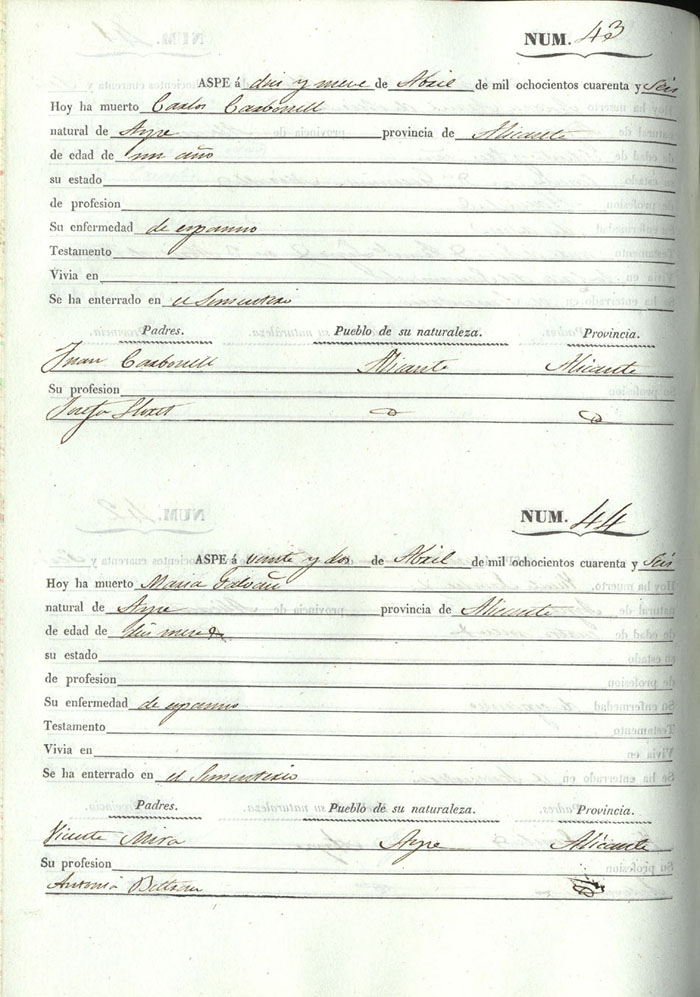 NUM. 43
ASPE á diez y nueve de Abril de mil ochocientos cuarenta y seis
Hoy ha muerto Carlos Carbonell
natural de Aspe provincia de Alicante
de edad de un año
su estado
de profesion
Su enfermedad de espasmo
Testamento
Vivia en
Se ha enterrado en el Sementerio
Padres. Pueblo de su naturaleza. Provincia.
Juan Carbonell Alicante Alicante
Su profesion
Josefa
NUM. 44
ASPE á veinte y dos de Abril de mil ochocientos cuarenta y seis
Hoy ha muerto Maria
natural de Aspe provincia de Alicante
de edad de meses
su estado
de profesion
Su enfermedad de espasmo
Testamento
Vivia en
Se ha enterrado en el Sementerio
Padres. Pueblo de su naturaleza. Provincia.
Vicente Mira Aspe Alicante
Su profesion
Antonia Beltran